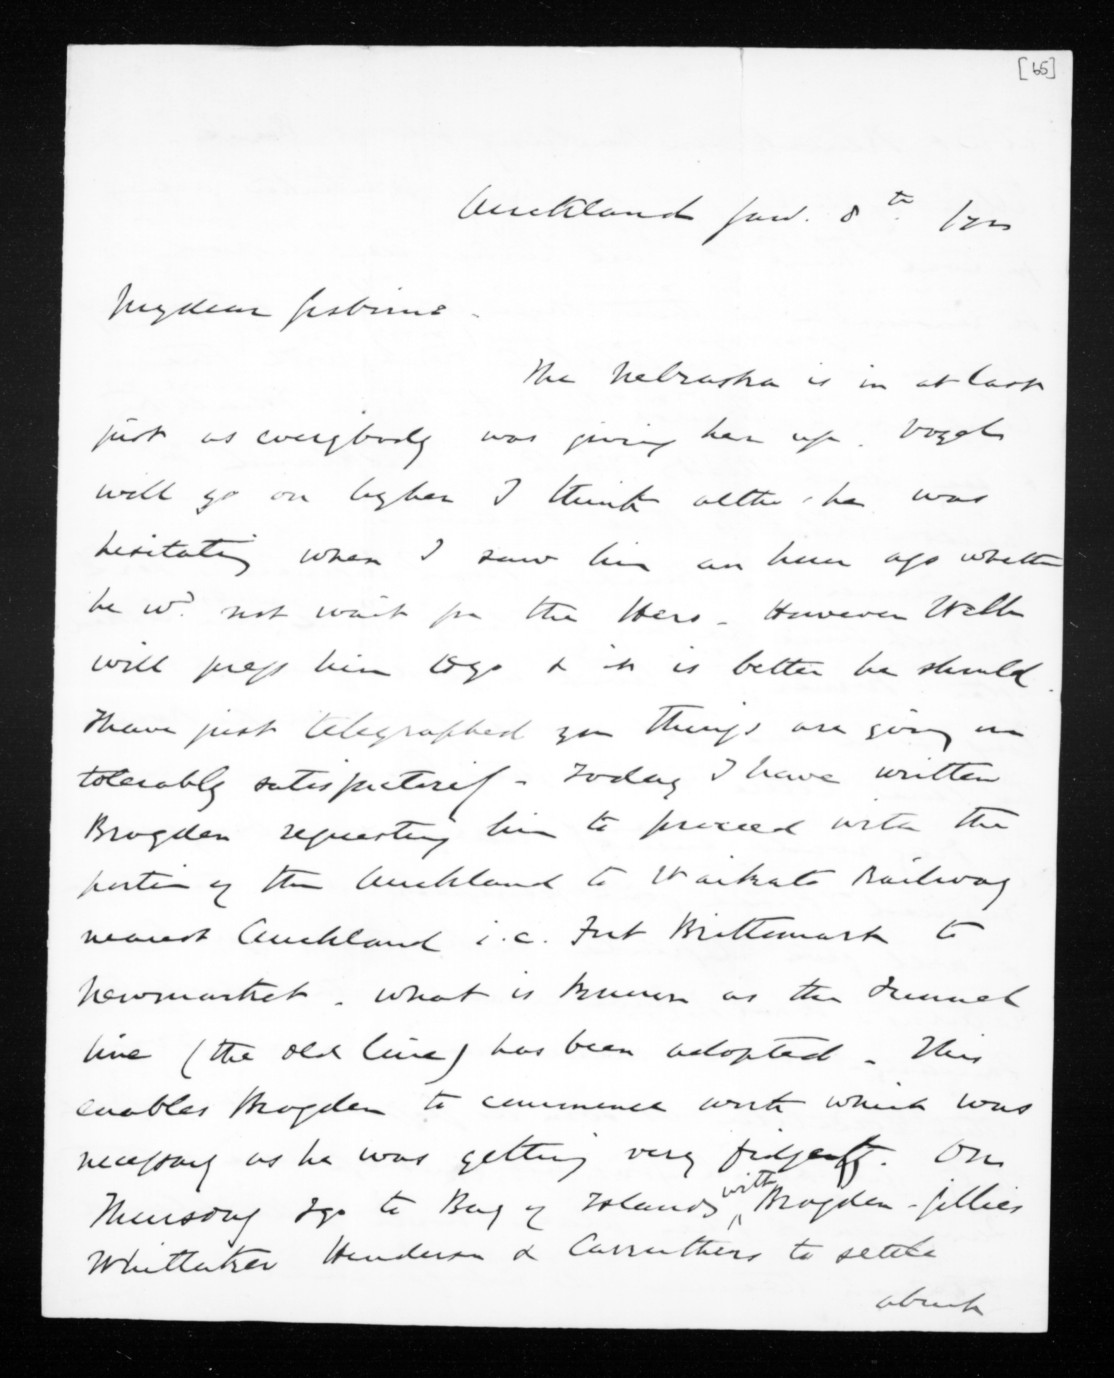 [65]
Auckland Jan. 8th /72
My dear Gisborne.
The Nebraska is in at last
just as everybody was giving her up. Vogel
will go on by her I think altho' he was
hesitating when I saw him an hour ago whether
he wd. not wait for the Hero - However Webb
will press him to go & it is better he should.
I have just telegraphed you things are going on
tolerably satisfactorily - Today I have written
Brogden requesting him to proceed with the
portion of the Auckland to Waikato Railway
nearest Auckland i.e. Fort Brittomart to
Newmarket - what is known as the Tunnel
line (the old line) has been adopted - This
enables Brogden to commence work which was
necessary as he was getting very fidgetty. On
Thursday I go to Bay of Islands with Brogden - Gillies
Whittaker Henderson & Carruthers to settle
about